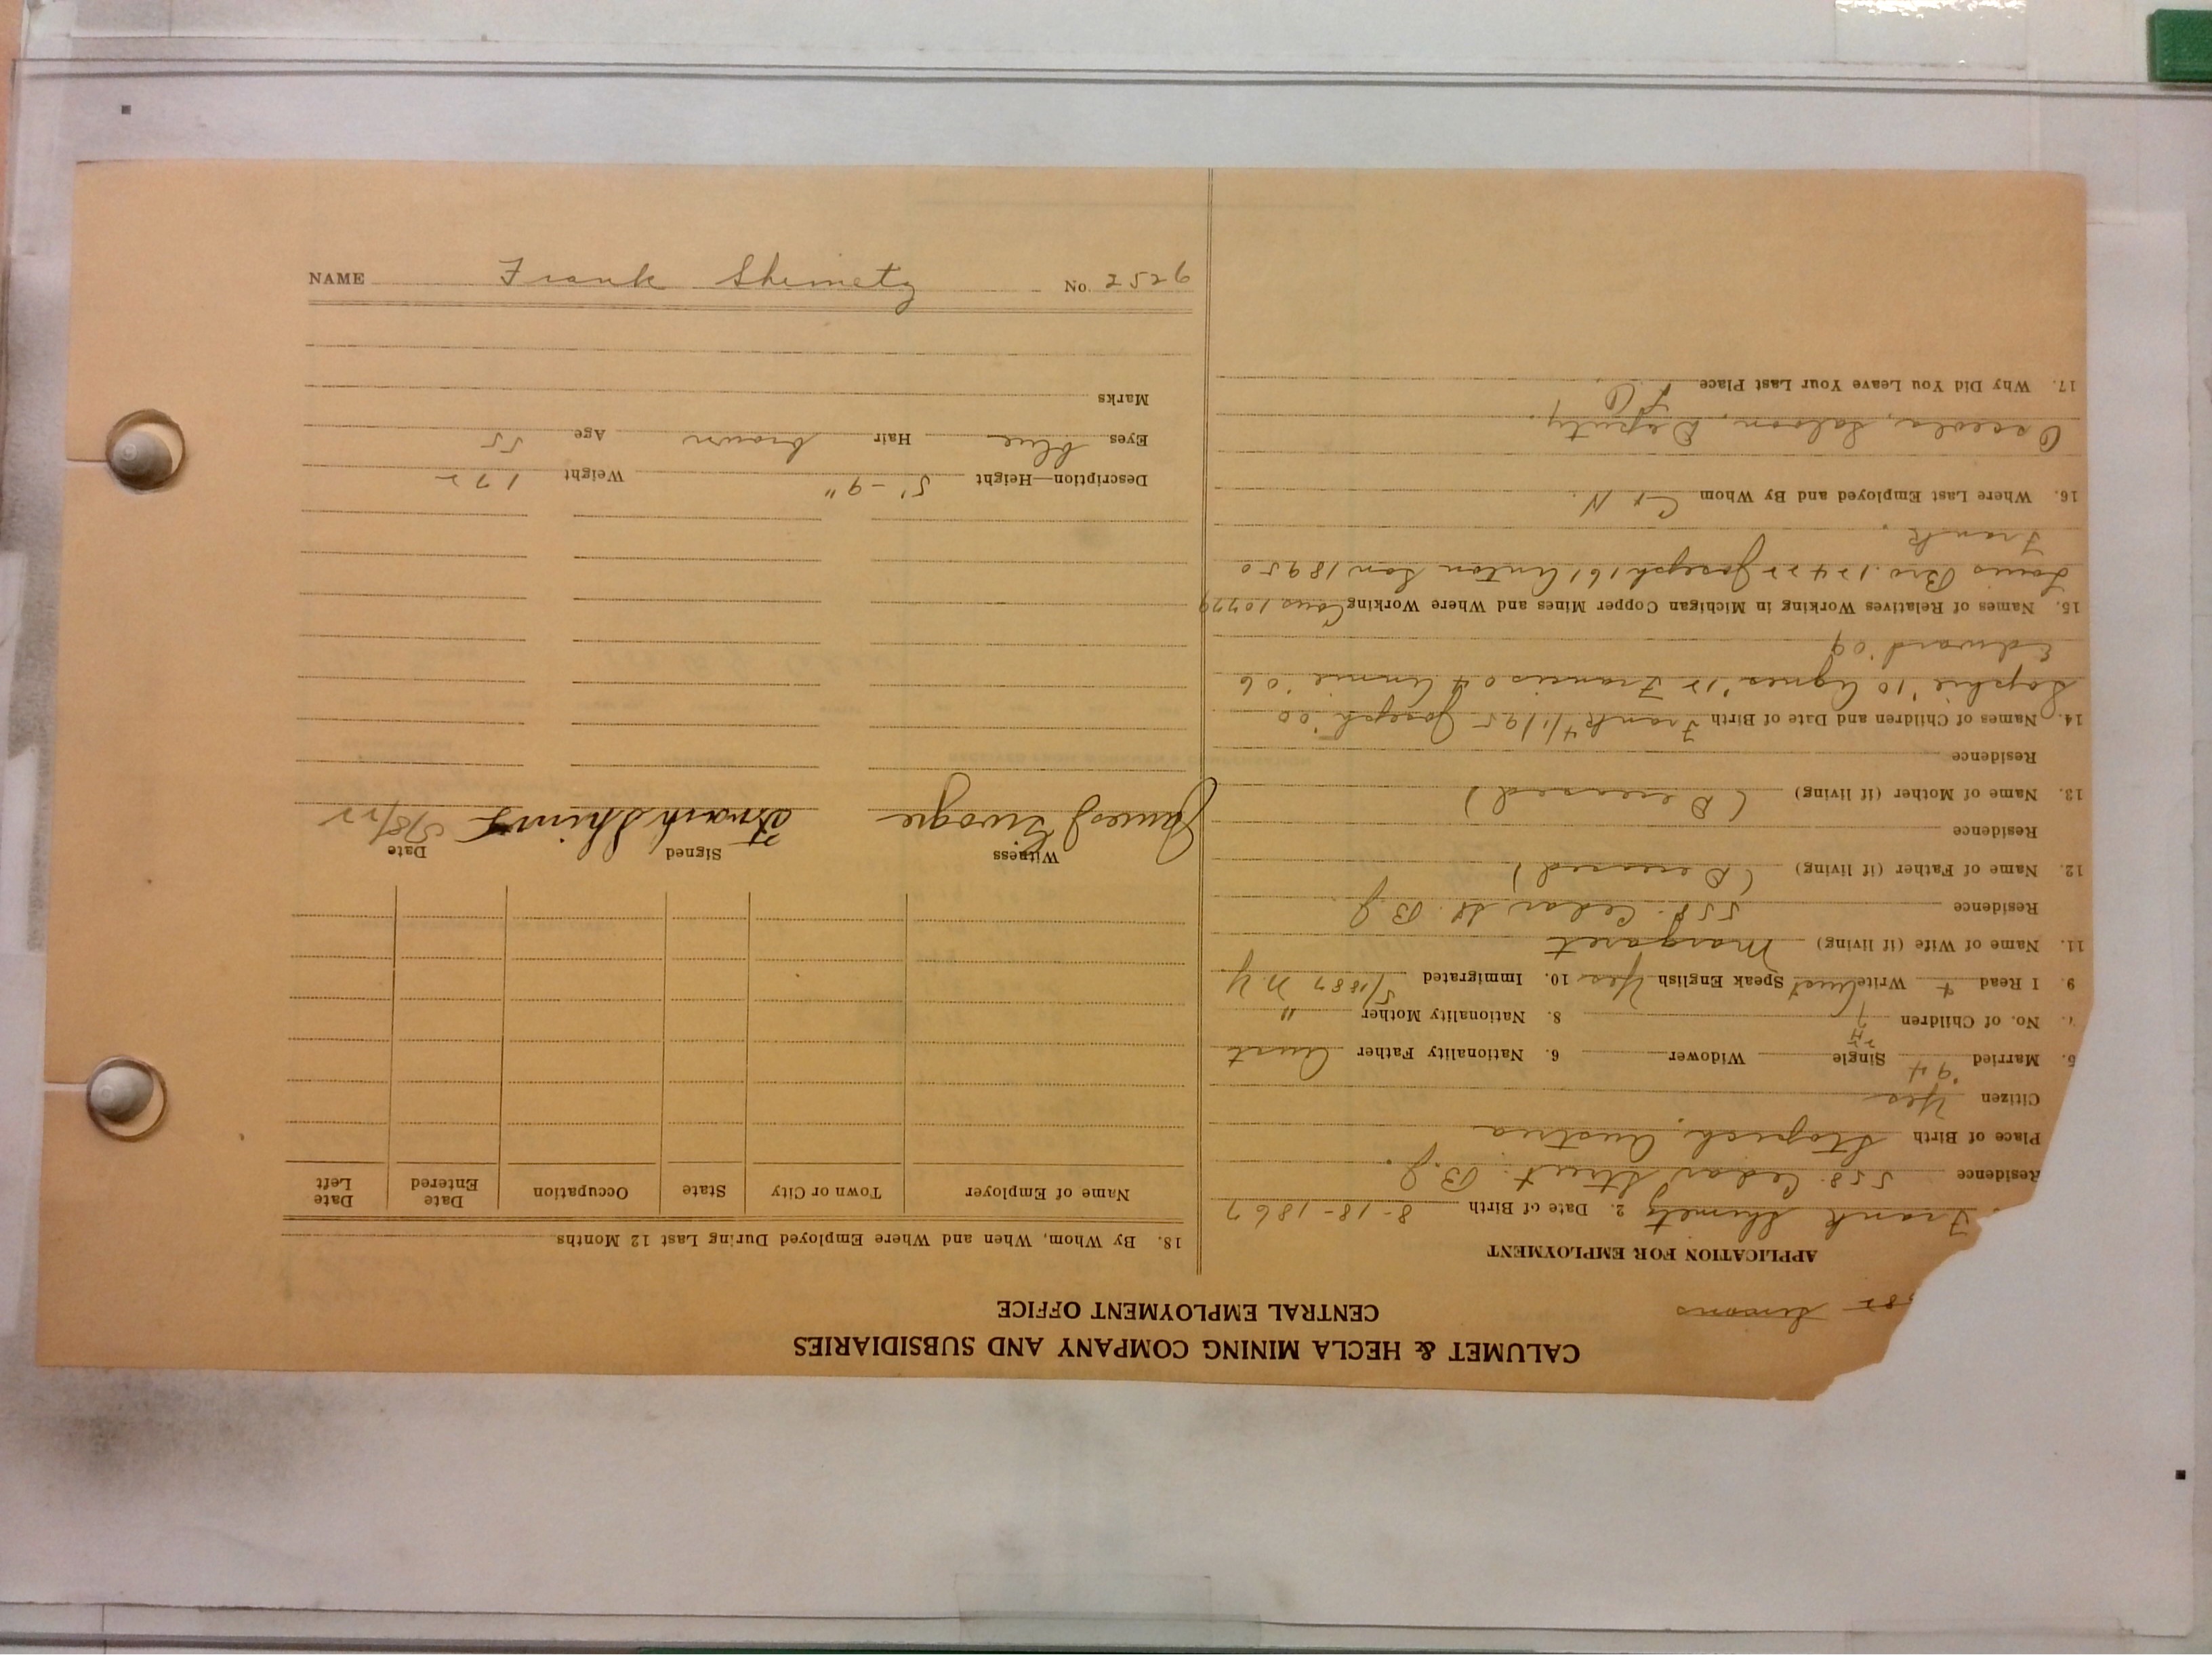 CALUMET & HECLA MINING COMPANY AND SUBSIDIARIES
CENTRAL EMPLOYMENT OFFICE
APPLICATION FOR EMPLOYMENT
Frank Shimetz 2. Date of Birth 8-18-1867
Residence 558 Cedar Street. B.J.
Place of Birth Austria
Citizen Yes
5. Married '94 Single Widower 6. Nationality Father Aust
No. of Children 7 8. Nationality Mother "
9. I Read + Write Aust Speak English Yes 10. Immigrated 5/1887 N.Y.
11. Name of Wife (if living) Margaret
Residence 558 Cedar St. B.J.
12. Name of Father (if living) (Deceased)
Residence
13. Name of Mother (if living) (Deceased)
Residence
14. Names of Children and Date of Birth Frank 4/1/95 Joseph '00
Sophie '10 Agnes '12 Francis 04 Annie '06
Edward '09
15. Names of Relatives Working in Michigan Copper Mines and Where Working
Louis Bro. 12422 Joseph 161 Anton Son 18950
Frank
16. Where Last Employed and By Whom C + H.
Osceola, Saloon, Deputy.
17. Why Did You Leave Your Last Place
18. By Whom, When and Where Employed During Last 12 Months
Name of Employer Town or City State Occupation Date Entered Date Left
Witness Signed Date
James 5/8/22
Description—Height 5'-9" Weight 172
Eyes blue Hair brown Age 55
Marks
NAME Frank Shimetz No. 2526